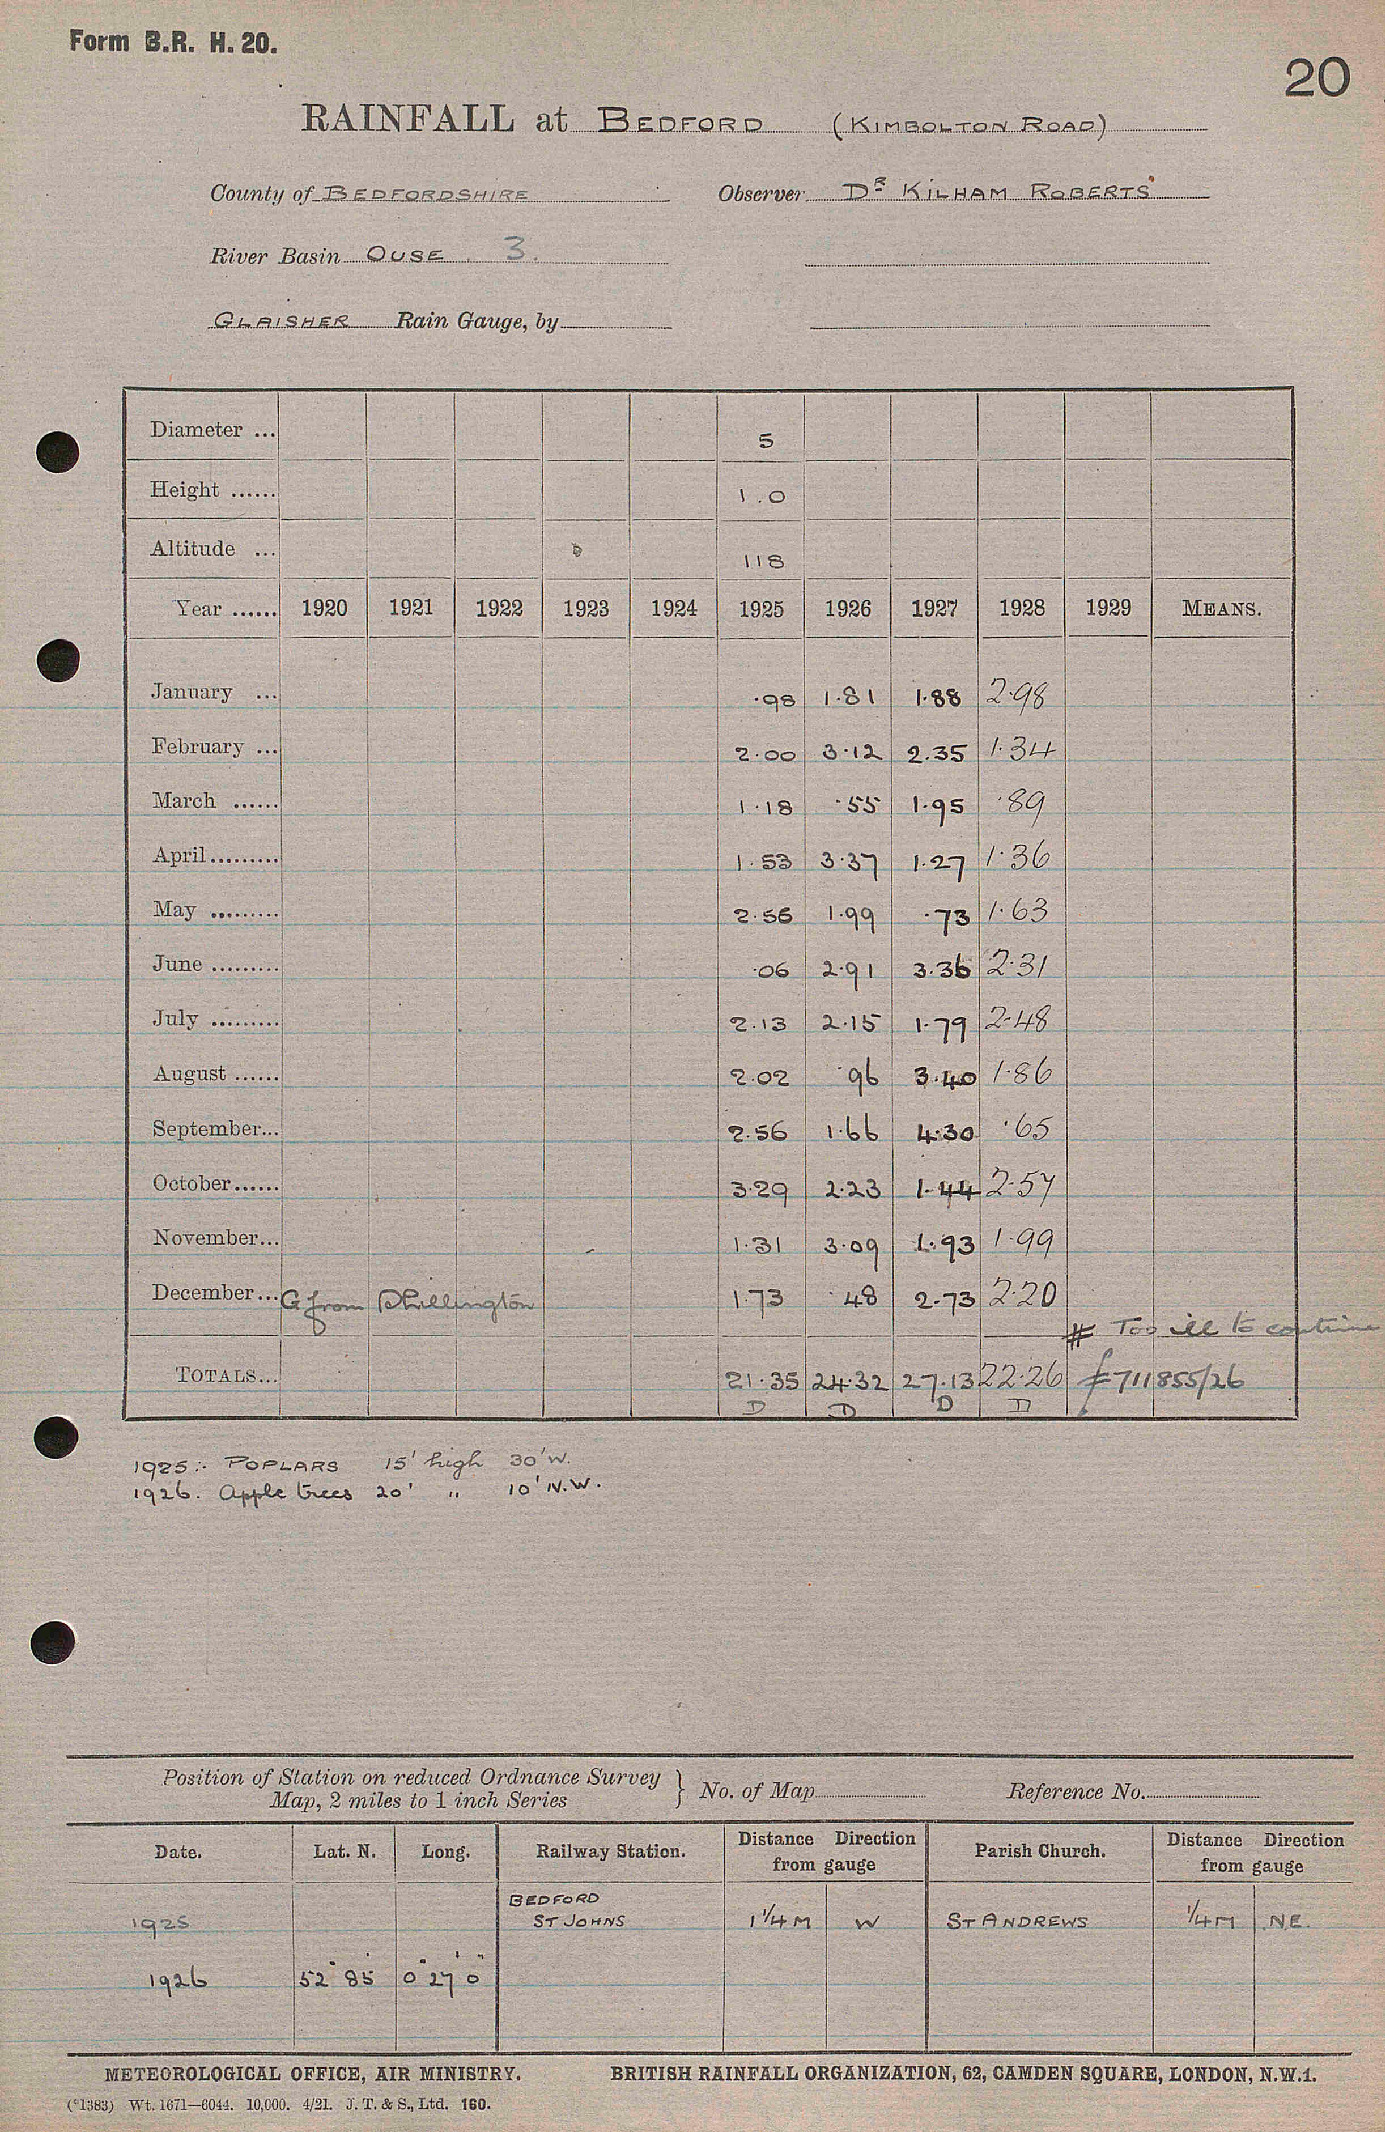 Form B.R. H. 20.
20
RAINFALL at BEDFORD (KIMBOLTON ROAD)
County of BEDFORDSHIRE Observer DR KILHAM ROBERTS
River Basin OUSE 3.
GLAISHER Rain Gauge, by
Diameter ... 5
Height ...... 1.0
Altitude ... 118
Year ...... 1920 1921 1922 1923 1924 1925 1926 1927 1928 1929 MEANS.
January ... ·98 1·81 1·88 2·98
February ... 2·00 3·12 2.35 1·34
March ...... 1·18 ·55 1·95 ·89
April......... 1·53 3·37 1·27 1·36
May ......... 2·56 1·99 ·73 1·63
June ......... ·06 2·91 3·36 2·31
July ......... 2·13 2·15 1·79 2·48
August ...... 2·02 96 3·40 1·86
September... 2·56 1·66 4·30 ·65
October...... 3·29 2·23 1·44 2·57
November... 1·31 3·09 1·93 1·99
December... G from Shillington 1·73 ·48 2·73 2·20
# Too ill to continue
TOTALS... 21·35 24·32 27·13 22·26 711855/26
D D D D
1925:- POPLARS 15' high 30' W.
1926. Apple trees 20' " 10' N.W.
Position of Station on reduced Ordnance Survey Map, 2 miles to 1 inch Series } No. of Map Reference No.
Date. Lat. N. Long. Railway Station. Distance Direction from gauge Parish Church. Distance Direction from gauge
1925 BEDFORD ST JOHNS 1 1/4 M W ST ANDREWS 1/4 M N.E.
1926 52° 85' 0° 27' 0"
METEOROLOGICAL OFFICE, AIR MINISTRY. BRITISH RAINFALL ORGANIZATION, 62, CAMDEN SQUARE, LONDON, N.W.1.
(*1383) Wt. 1671—6044. 10,000. 4/21. J. T. & S., Ltd. 160.